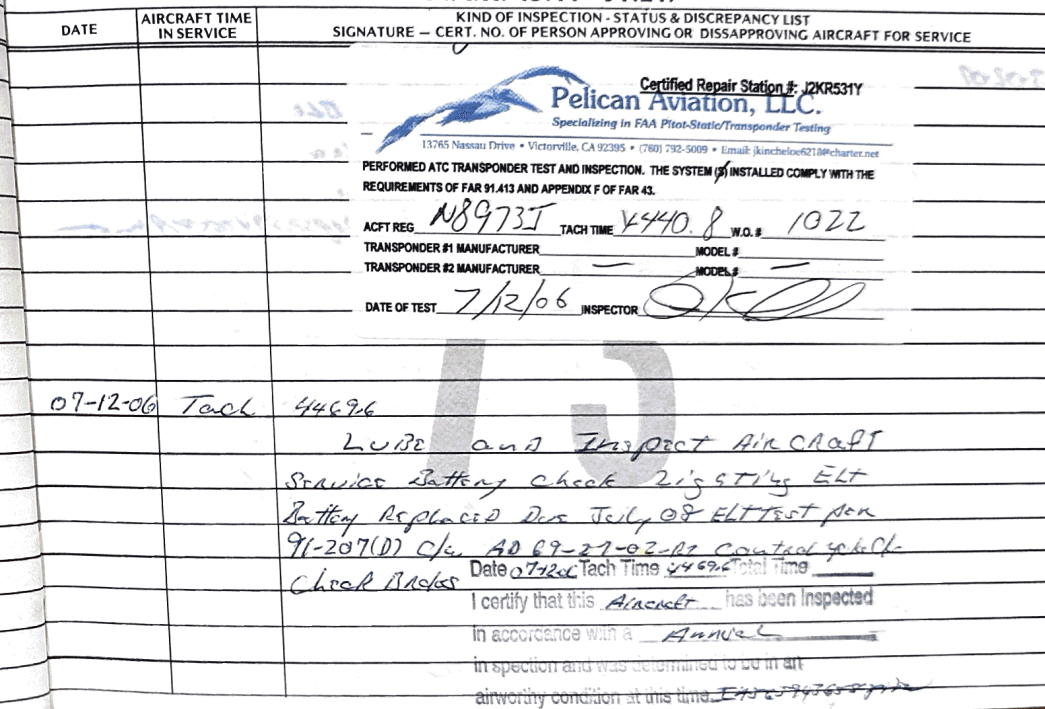 DATE
AIRCRAFT TIME
IN SERVICE
KIND OF INSPECTION - STATUS & DISCREPANCY LIST
SIGNATURE — CERT. NO. OF PERSON APPROVING OR DISSAPPROVING AIRCRAFT FOR SERVICE
Certified Repair Station #: J2KR531Y
Pelican Aviation, LLC.
Specializing in FAA Pitot-Static/Transponder Testing
13765 Nassau Drive • Victorville, CA 92395 • (760) 792-5009 • Email: jkincheloe6218@charter.net
PERFORMED ATC TRANSPONDER TEST AND INSPECTION. THE SYSTEM (S) INSTALLED COMPLY WITH THE
REQUIREMENTS OF FAR 91.413 AND APPENDIX F OF FAR 43.
ACFT REG N8973J TACH TIME 4440.8 W.O.# 1022
TRANSPONDER #1 MANUFACTURER MODEL #
TRANSPONDER #2 MANUFACTURER — MODEL # —
DATE OF TEST 7/12/06 INSPECTOR
07-12-06 Tach 4469.6
LUBE and Inspect AirCRaft
Service Battery Check ELT
Battery Replaced Due July 08 ELT Test per
91-207(D) C/w AD 69-27-02-R2 Control yoke
Check Brakes
Date 07-12-06 Tach Time 4469.6 Total Time
I certify that this Aircraft has been Inspected
in accordance with a Annual
inspection and was determined to be in art
airworthy condition at this time.